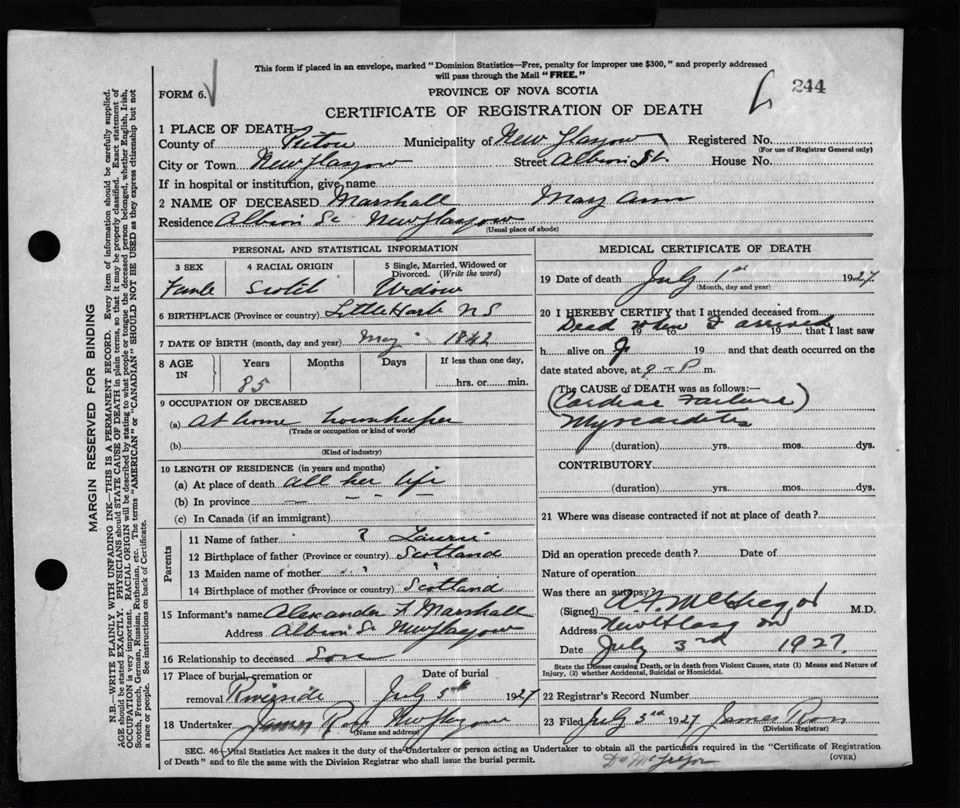 This form if placed in an envelope, marked "Dominion Statistics—Free, penalty for improper use $300," and properly addressed
will pass through the Mail "FREE."
FORM 6.
PROVINCE OF NOVA SCOTIA
244
CERTIFICATE OF REGISTRATION OF DEATH
1 PLACE OF DEATH
County of Pictou Municipality of New Glasgow Registered No.
(For use of Registrar General only)
City or Town New Glasgow Street Albion St. House No.
If in hospital or institution, give name
2 NAME OF DECEASED Marshall Mary Ann
Residence Albion St New Glasgow
(Usual place of abode)
PERSONAL AND STATISTICAL INFORMATION
3 SEX 4 RACIAL ORIGIN 5 Single, Married, Widowed or Divorced. (Write the word)
Female Scotch Widow
6 BIRTHPLACE (Province or country) Little Harb N S
7 DATE OF BIRTH (month, day and year) May 1842
8 AGE IN Years Months Days If less than one day,
85 hrs. or min.
9 OCCUPATION OF DECEASED
(a) At home housekeeper
(Trade or occupation or kind of work)
(b)
(Kind of industry)
10 LENGTH OF RESIDENCE (in years and months)
(a) At place of death all her life
(b) In province
(c) In Canada (if an immigrant)
Parents
11 Name of father ? Laurie
12 Birthplace of father (Province or country) Scotland
13 Maiden name of mother
14 Birthplace of mother (Province or country) Scotland
15 Informant's name Alexander F. Marshall
Address Albion St New Glasgow
16 Relationship to deceased Son
17 Place of burial, cremation or Date of burial
removal Riverside July 5th 1927
18 Undertaker James Ross New Glasgow
(Name and address)
MEDICAL CERTIFICATE OF DEATH
19 Date of death July 1st 1927.
(Month, day and year)
20 I HEREBY CERTIFY that I attended deceased from
Dead when I arrived
19 to 19 that I last saw
h alive on 19 and that death occurred on the
date stated above, at 9 - P m.
The CAUSE of DEATH was as follows:—
(Cardiac Failure)
Myocarditis
(duration) yrs. mos. dys.
CONTRIBUTORY
(duration) yrs. mos. dys.
21 Where was disease contracted if not at place of death?
Did an operation precede death? Date of
Nature of operation
Was there an autopsy?
(Signed) McGregor M.D.
Address New Glasgow
Date July 3rd 1927.
State the Disease causing Death, or in death from Violent Causes, state (1) Means and Nature of
Injury, (2) whether Accidental, Suicidal or Homicidal.
22 Registrar's Record Number
23 Filed July 3rd 1927 James Ross
(Division Registrar)
SEC. 46—Vital Statistics Act makes it the duty of the Undertaker or person acting as Undertaker to obtain all the particulars required in the "Certificate of Registration
of Death" and to file the same with the Division Registrar who shall issue the burial permit.
(OVER)
Dr McGregor
MARGIN RESERVED FOR BINDING
N.B.—WRITE PLAINLY WITH UNFADING INK—THIS IS A PERMANENT RECORD. Every item of information should be carefully supplied.
AGE should be stated EXACTLY. PHYSICIANS should STATE CAUSE OF DEATH in plain terms, so that it may be properly classified. Exact statement of
OCCUPATION is very important. RACIAL ORIGIN will be described by stating to what people or tongue the deceased person belonged, whether English, Irish,
Scotch, French, German, Russian, Ruthenian, etc. The terms "AMERICAN" or "CANADIAN" SHOULD NOT BE USED as they express citizenship but not
a race or people. See instructions on back of Certificate.